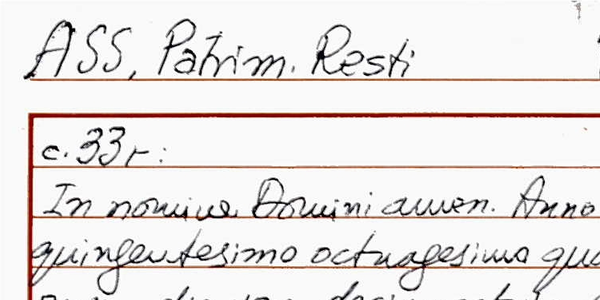 ASS, Patrim. Resti
c. 33r:
In nomine Domini amen. Anno
quingentesimo octuagesimo